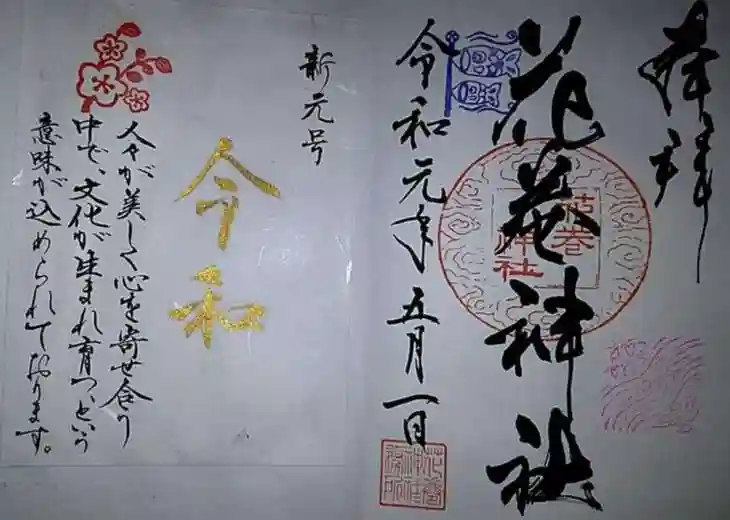 奉拝
花巻神社
花巻
神社
令和元年五月一日
新元号
令和
人々が美しく心を寄せ合う
中で、文化が生まれ育つ、という
意味が込められております。